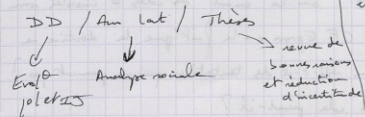 DD / Am lat / Thèses
Eval°
Analyse sociale
revue de
bonnes raisons
et réduction
d'incertitude